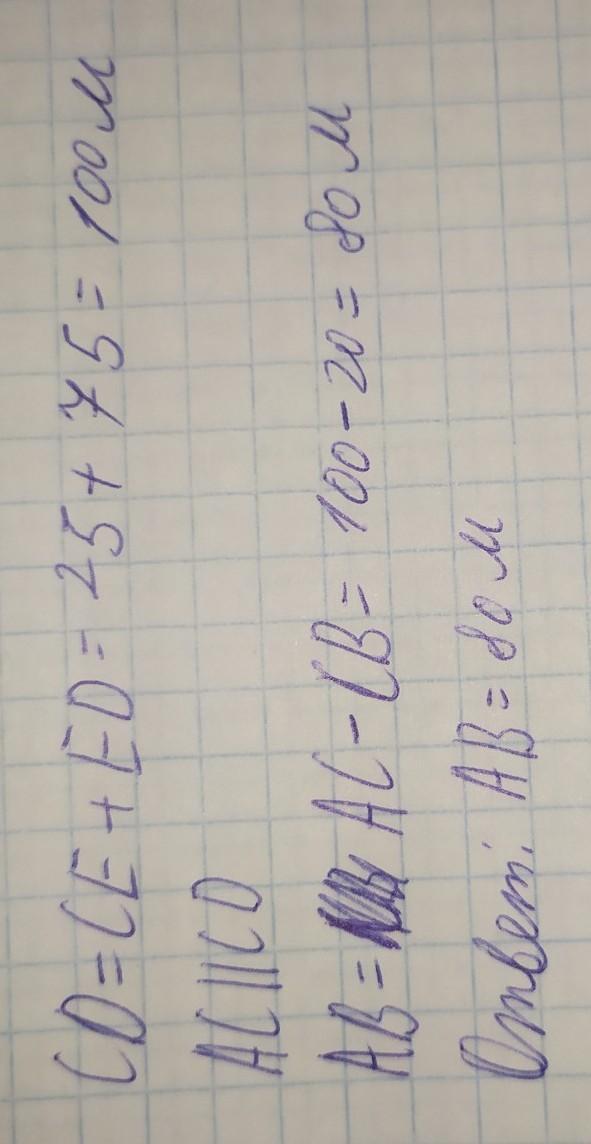 CD = CE + ED = 25 + 75 = 100 м
AC || CD
AB = AC - CB = 100 - 20 = 80 м
Ответ: AB = 80 м